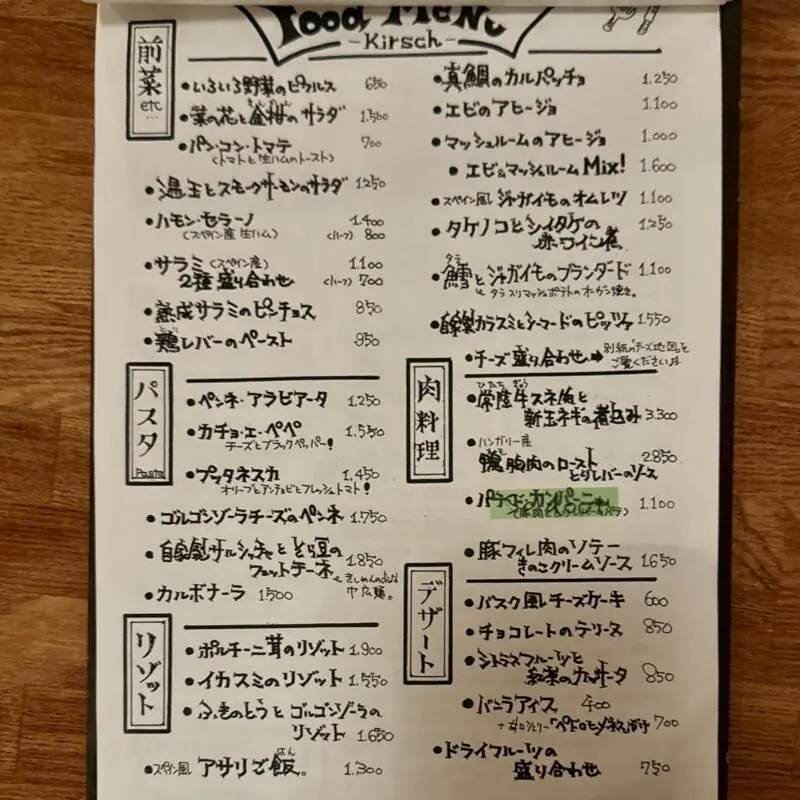 Food Menu
-Kirsch-
前菜
etc...
・いろいろ野菜のピクルス 650
・菜の花と金柑のサラダ 1.500
・パン・コン・トマテ 700
(トマトと生ハムのトースト)
・温玉とスモークサーモンのサラダ 1250
・ハモン・セラーノ 1.400
(スペイン産 生ハム) (ハーフ) 800
・サラミ(スペイン産) 1.100
2種盛り合わせ (ハーフ) 700
・熟成サラミのピンチョス 850
・鶏レバーのペースト 950
・真鯛のカルパッチョ 1.250
・エビのアヒージョ 1.100
・マッシュルームのアヒージョ 1.000
・エビ&マッシュルームMix! 1.600
・スペイン風ジャガイモのオムレツ 1.100
・タケノコとシイタケの 1.250
赤ワイン煮
タラ
・鱈とジャガイモのブランダード 1.100
タラ入りマッシュポテトのオーブン焼き。
・自家製カラスミとシーフードのピッツァ 1.550
・チーズ盛り合わせ➡ 別紙"チーズ地図"を
ご覧ください♪
パスタ
Pasta
・ペンネ・アラビアータ 1.250
・カチョ・エ・ペペ 1.550
チーズとブラックペッパー!
・プッタネスカ 1,450
オリーブとアンチョビとフレッシュトマト!
・ゴルゴンゾーラチーズのペンネ 1.750
・自家製サルシッチャとそら豆の
フェットチーネ 1.850
きしめんのような
巾広麺。
・カルボナーラ 1500
リゾット
・ポルチーニ茸のリゾット 1.900
・イカスミのリゾット 1.550
・ふきのとうとゴルゴンゾーラの
リゾット 1.650
はん
・スペイン風 アサリご飯。 1.300
肉料理
ひたち ぎゅう
・常陸牛スネ肉と
新玉ネギの煮込み 3.300
・ハンガリー産
鴨胸肉のロースト 2.850
とりレバーのソース
・パテ・ド・カンパーニュ 1.100
・豚フィレ肉のソテー
きのこクリームソース 1650
デザート
・バスク風チーズケーキ 600
・チョコレートのテリーヌ 850
・シトラスフルーツと
紅茶の 850
・バニラアイス 400
+甘口シェリー「ペドロヒメネス」がけ 700
・ドライフルーツの
盛り合わせ 750